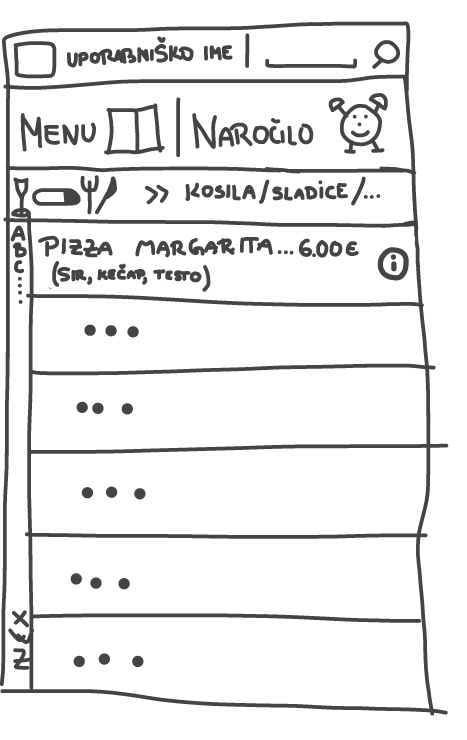 UPORABNIŠKO IME
MENU NAROČILO
>> KOSILA/SLADICE/...
A
B
C
PIZZA MARGARITA... 6.00€
(SIR, KEČAP, TESTO)
X
Y
Z